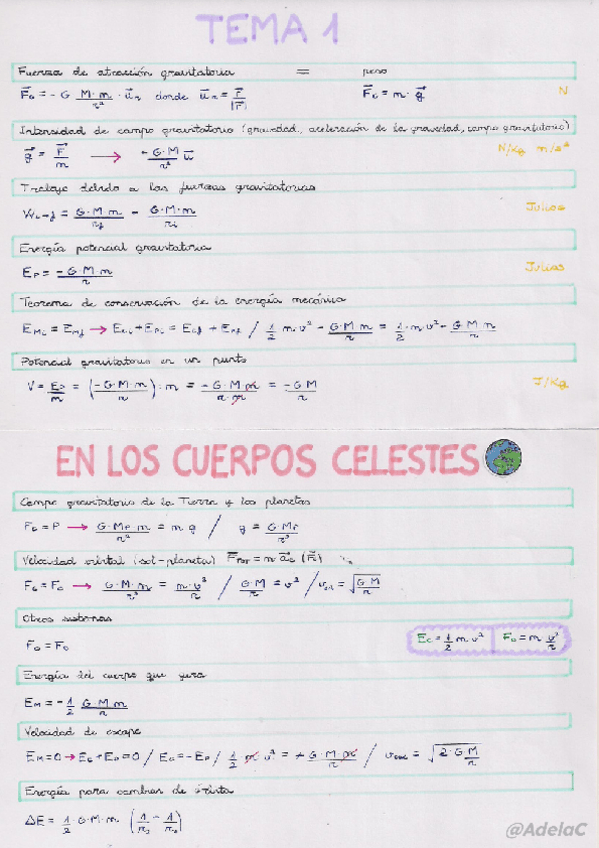 TEMA 1
Fuerza de atracción gravitatoria = peso
F⃗G = - G M·m/r² · u⃗r donde u⃗r = r⃗/|r⃗| F⃗G = m · g⃗ N
Intensidad de campo gravitatorio (gravedad, aceleración de la gravedad, campo gravitatorio)
g⃗ = F⃗/m → -G·M/r² u⃗ N/Kg m/s²
Trabajo debido a las fuerzas gravitatorias
Wi→f = G·M·m/rf - G·M·m/ri Julios
Energía potencial gravitatoria
EP = -G·M·m/r Julios
Teorema de conservación de la energía mecánica
EMi = EMf → Eci + EPi = Ecf + EPf / 1/2 m·v² - G·M·m/r = 1/2 · m·v² - G·M·m/r
Potencial gravitatorio en un punto
V = EP/m = (-G·M·m/r) : m = -G·M·m/r·m = -G·M/r J/Kg
EN LOS CUERPOS CELESTES
Campo gravitatorio de la Tierra y los planetas
FG = P → G·MP·m/r² = m g / g = G·MP/r²
Velocidad orbital (sol-planeta)
FG = FC → G·M·m/r² = m·v²/r / G·M/r = v² / vorb = √G·M/r
Otros sistemas
FG = FC EC = 1/2 m v² FC = m v²/r
Energía del cuerpo que gira
EM = -1/2 G·M·m/r
Velocidad de escape
EM = 0 → EC + EP = 0 / EC = -EP / 1/2 m v² = + G·M·m/r / vesc = √2·G·M/r
Energía para cambiar de órbita
ΔE = 1/2 · G·M·m (1/r1 - 1/r2)
@AdelaC